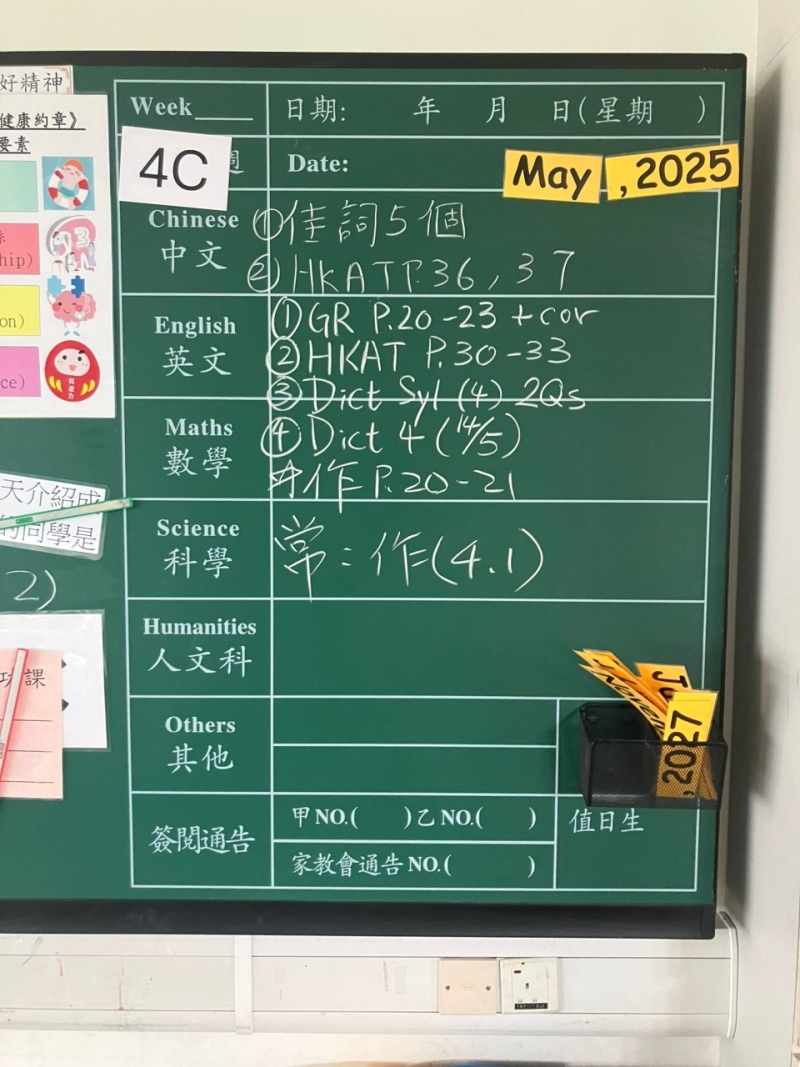 好精神
健康約章》
要素
hip)
on)
ce)
天介紹成
的同學是
2)
功課
Week____ 日期: 年 月 日(星期 )
4C 週 Date: May ,2025
Chinese 中文
①佳詞5個
②HKAT P.36,37
English 英文
①GR P.20-23 + cor
②HKAT P.30-33
③Dict Syl (4) 2Qs
Maths 數學
④Dict 4 (14/5)
作 P.20-21
Science 科學
常:作(4.1)
Humanities 人文科
Others 其他
,2027
簽閱通告
甲NO.( )乙NO.( )
家教會通告NO.( )
值日生